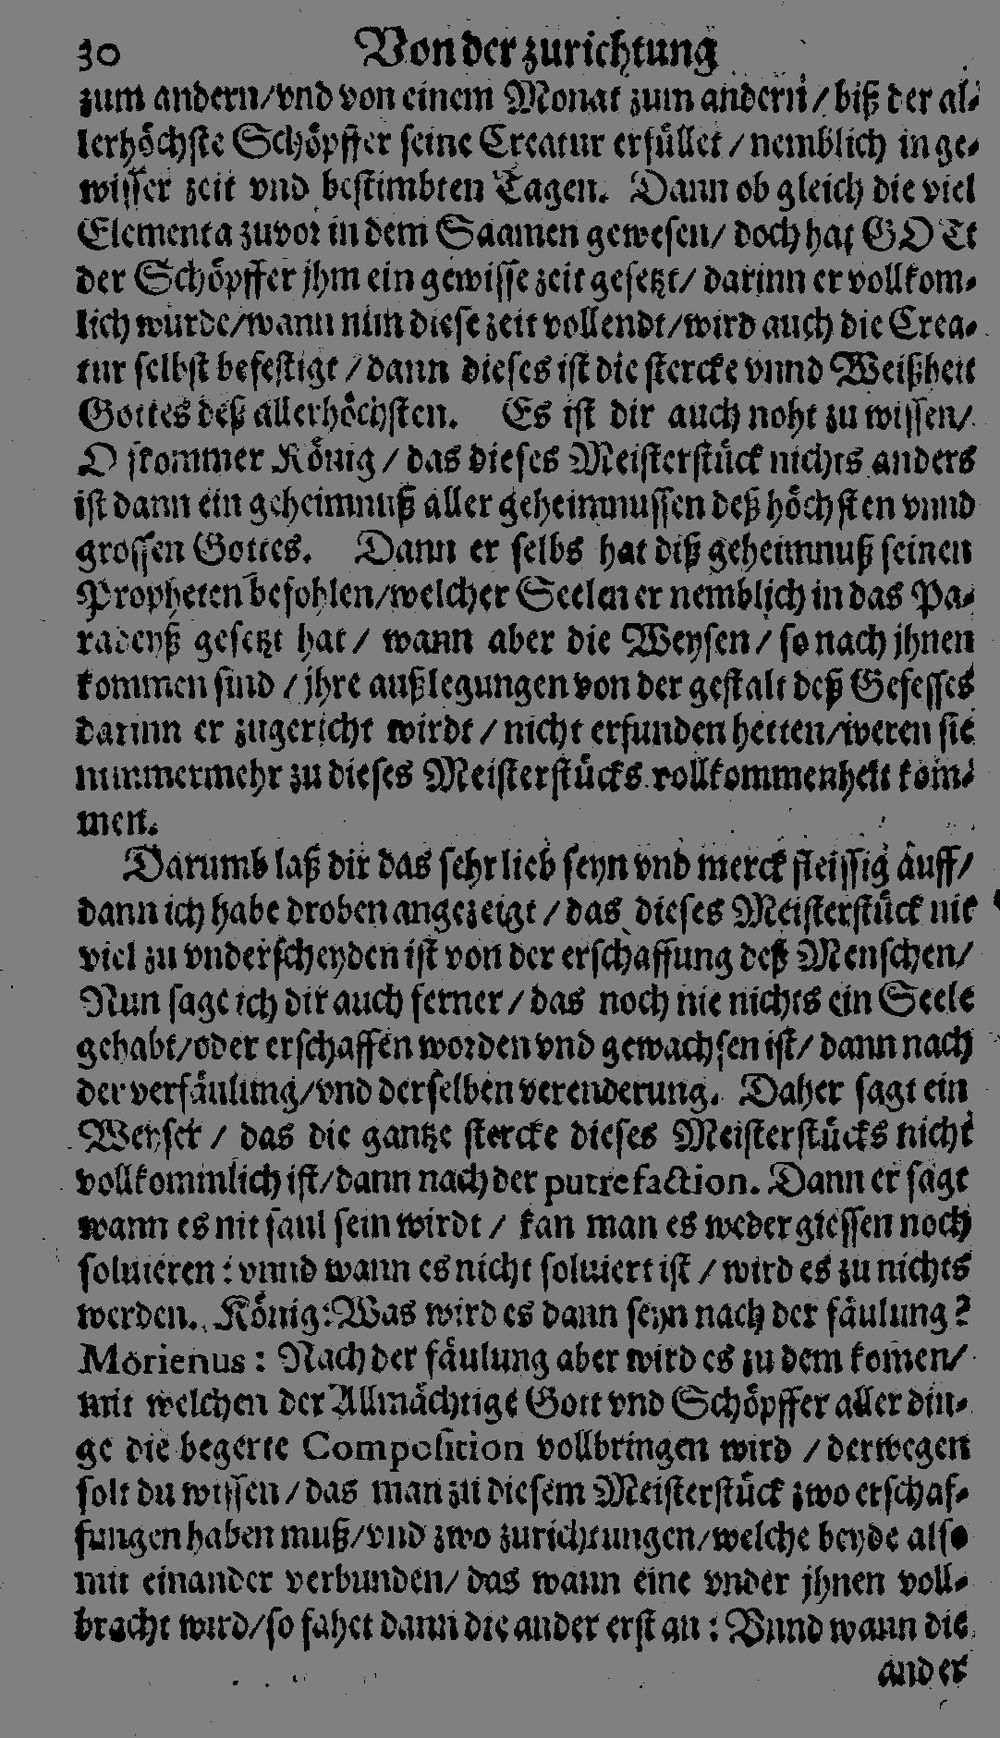 30 Von der zurichtung
zum andern/vnd von einem Monat zum andern/biß der al-
lerhöchste Schöpffer seine Creatur erfüllet/nemblich in ge-
wisser zeit vnd bestimbten Tagen. Dann ob gleich die viel
Elementa zuvor in dem Saamen gewesen/doch hat GOTt
der Schöpffer jhm ein gewisse zeit gesetzt/darinn er vollkom-
lich wurde/wann nun diese zeit vollendt/wird auch die Crea-
tur selbst befestigt/dann dieses ist die stercke vnnd Weißheit
Gottes deß allerhöchsten. Es ist dir auch noht zu wissen/
O frommer König/das dieses Meisterstück nichts anders
ist dann ein geheimnuß aller geheimnussen deß höchsten vnnd
grossen Gottes. Dann er selbs hat diß geheimnuß seinen
Propheten befohlen/welcher Seelen er nemblich in das Pa-
radeyß gesetzt hat/wann aber die Weysen/so nach jhnen
kommen sind/jhre außlegungen von der gestalt deß Gefesses
darinn er zugericht wirdt/nicht erfunden hetten/weren sie
nimmermehr zu dieses Meisterstücks vollkommenheit kom-
men.
Darumb laß dir das sehr lieb seyn vnd merck fleissig auff/
dann ich habe droben angezeigt/das dieses Meisterstück nit
viel zu vnderscheyden ist von der erschaffung deß Menschen/
Nun sage ich dir auch ferner/das noch nie nichts ein Seele
gehabt/oder erschaffen worden vnd gewachsen ist/dann nach
der verfäulung/vnd derselben verenderung. Daher sagt ein
Weyser/das die gantze stercke dieses Meisterstücks nicht
vollkommlich ist/dann nach der putrefaction. Dann er sagt
wann es nit faul sein wirdt/kan man es weder giessen noch
soluieren: vnnd wann es nicht soluiert ist/wird es zu nichts
werden. König: Was wird es dann seyn nach der fäulung?
Morienus: Nach der fäulung aber wird es zu dem komen/
mit welchen der Allmächtige Gott vnd Schöpffer aller din-
ge die begerte Composition vollbringen wird/derwegen
solt du wissen/das man zu diesem Meisterstück zwo erschaf-
fungen haben muß/vnd zwo zurichtungen/welche beyde also
mit einander verbunden/das wann eine vnder jhnen voll-
bracht wird/so fahet dann die ander erst an: Vnnd wann die
ander